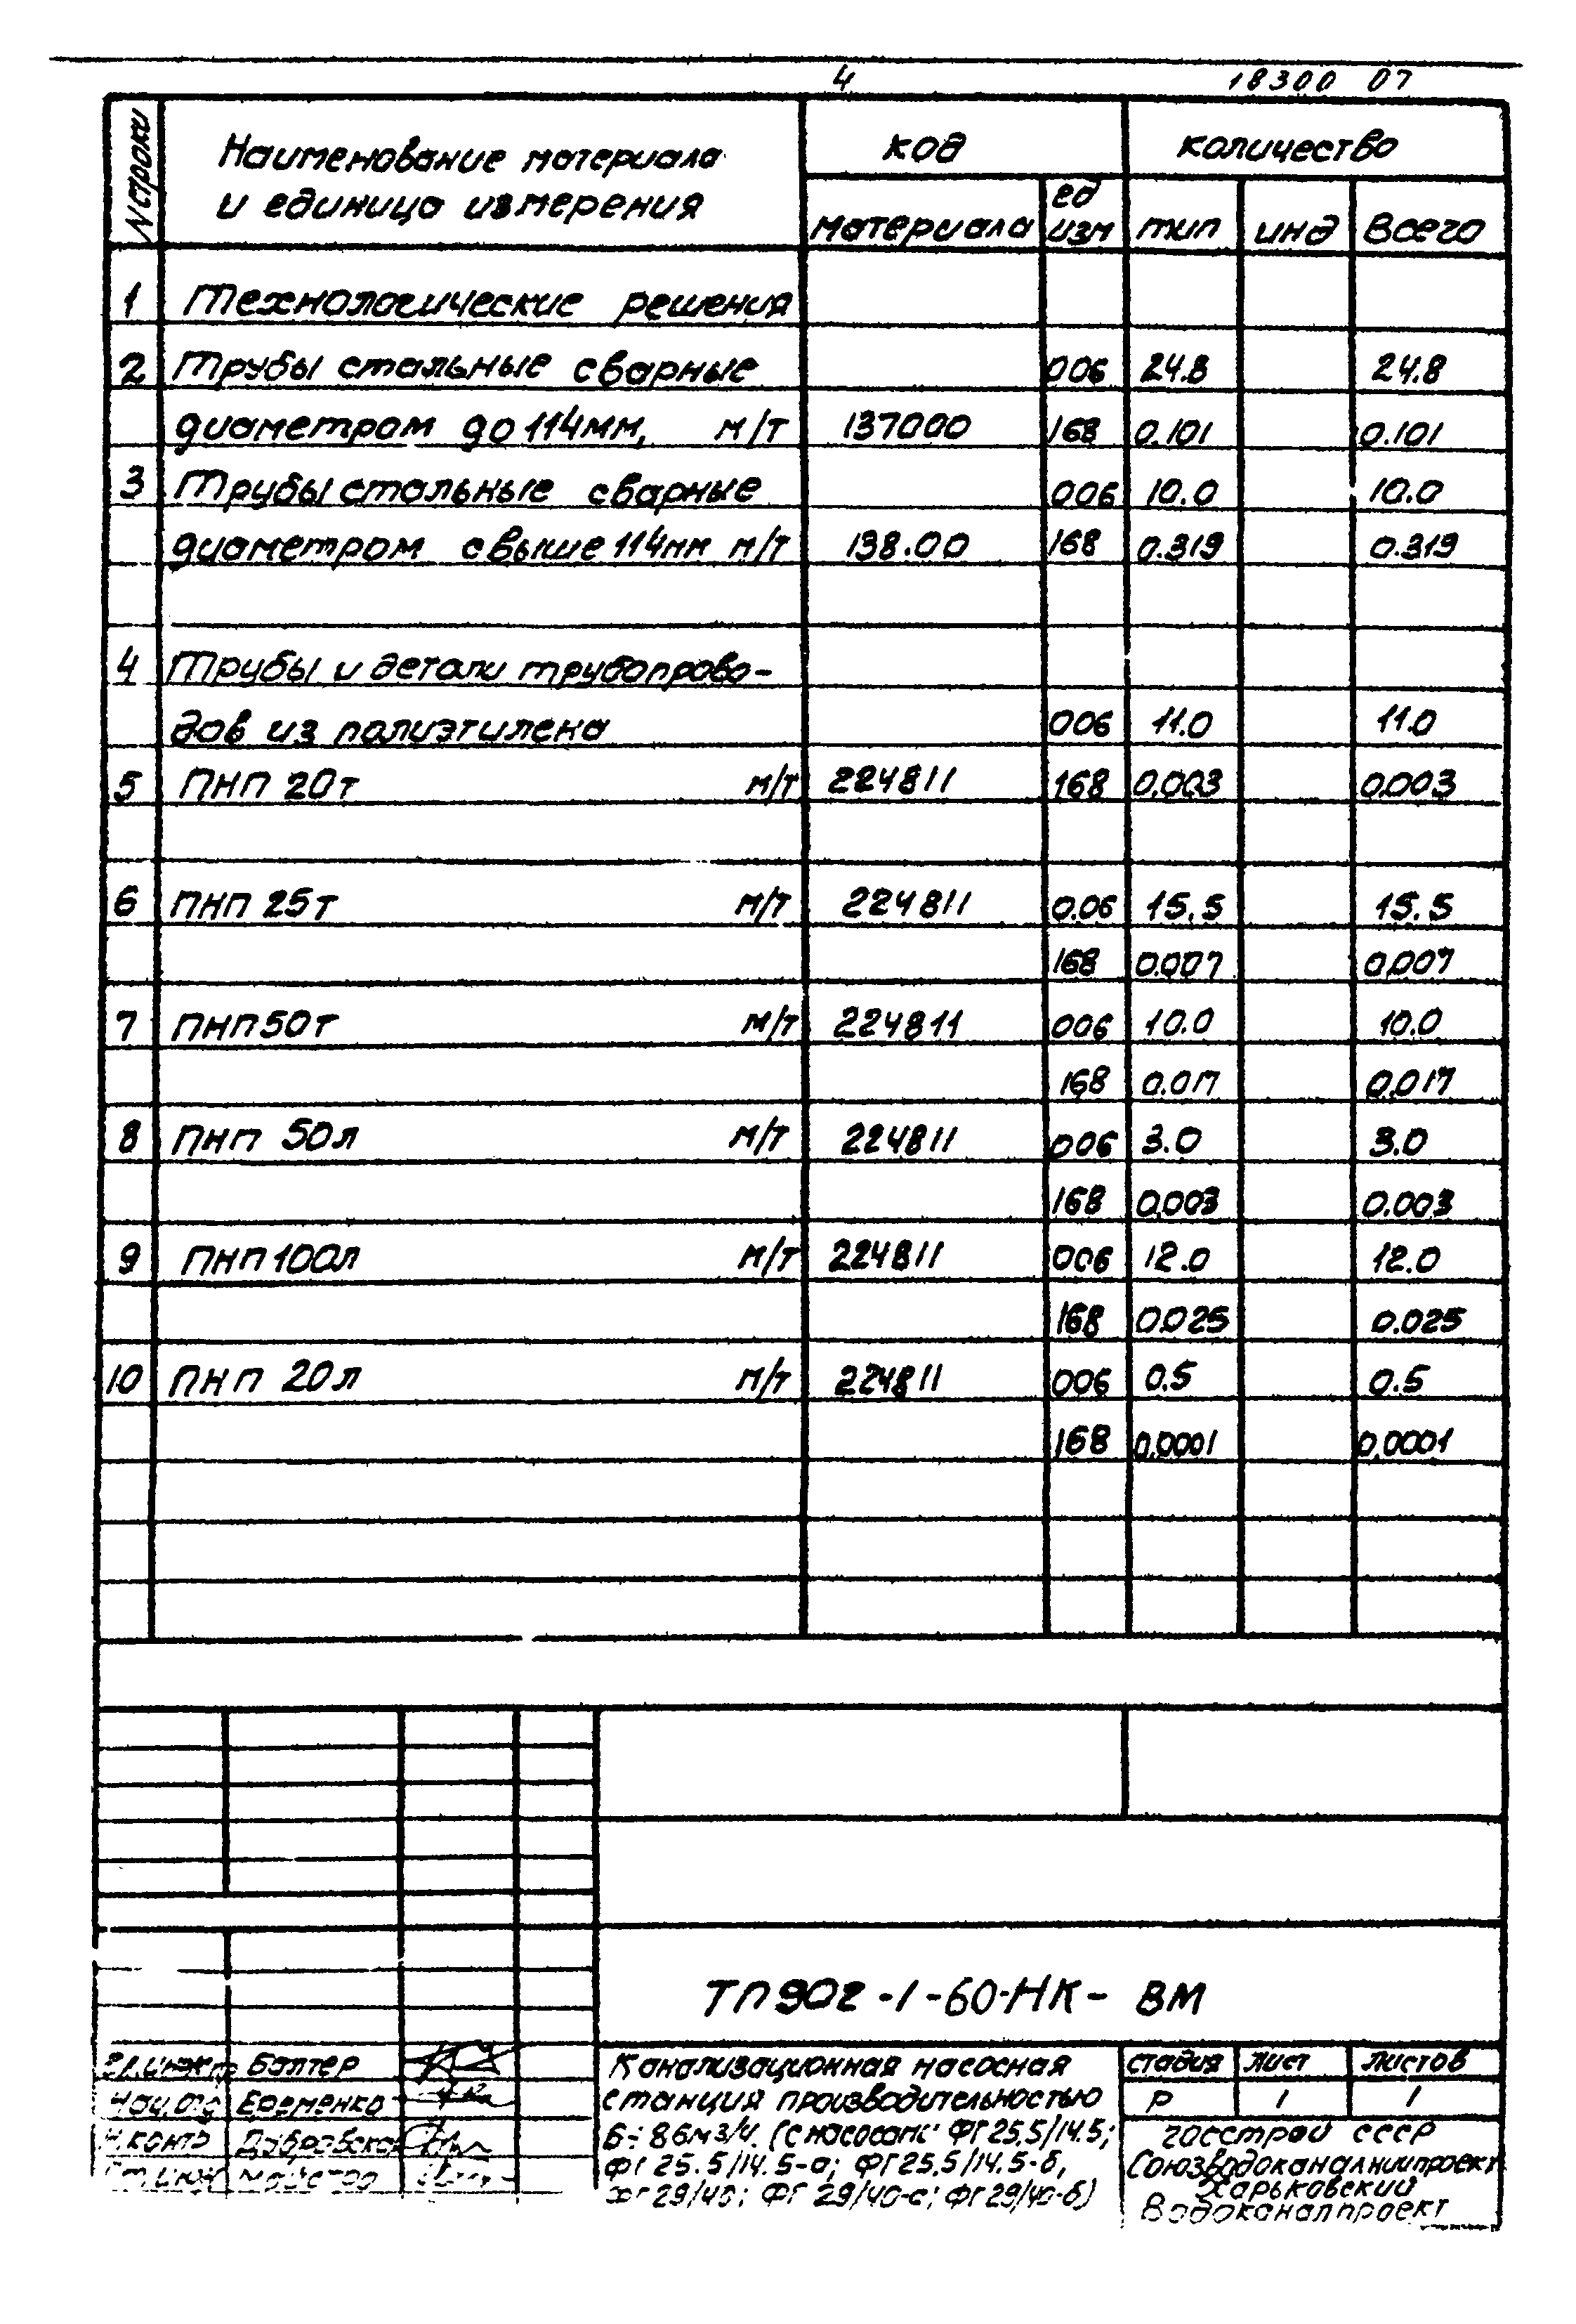 4 18300 07
N строки Наименование материала и единица измерения код количество
материала ед изм тип инд Всего
1 Технологические решения
2 Трубы стальные сварные 006 24.8 24.8
диаметром до 114мм, м/т 137000 168 0.101 0.101
3 Трубы стальные сварные 006 10.0 10.0
диаметром свыше 114мм м/т 138.00 168 0.319 0.319
4 Трубы и детали трубопрово-
дов из полиэтилена 006 11.0 11.0
5 ПНП 20т м/т 224811 168 0.003 0.003
6 ПНП 25т м/т 224811 0.06 15.5 15.5
168 0.007 0.007
7 ПНП 50т м/т 224811 006 10.0 10.0
168 0.017 0.017
8 ПНП 50л м/т 224811 006 3.0 3.0
168 0.003 0.003
9 ПНП 100л м/т 224811 006 12.0 12.0
168 0.025 0.025
10 ПНП 20л м/т 224811 006 0.5 0.5
168 0.0001 0.0001
ТП902-1-60-НК- ВМ
Гл.инж.пр Балтер
Нач.отд Еременко
Н.контр Дубровская
Ст.инж
Канализационная насосная
станция производительностью
6÷86м3/ч. (с насосами ФГ25.5/14.5;
ФГ25.5/14.5-а; ФГ25.5/14.5-б,
ФГ29/40; ФГ 29/40-а; ФГ29/40-б)
стадия лист листов
Р 1 1
Госстрой СССР
Союзводоканалниипроект
Харьковский
Водоканалпроект